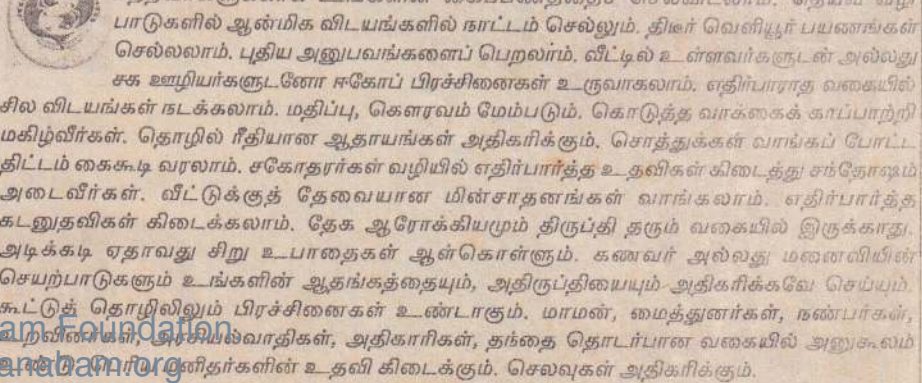 பாடுகளில் ஆன்மிக விடயங்களில் நாட்டம் செல்லும். திடீர் வெளியூர் பயணங்கள்
செல்லலாம். புதிய அனுபவங்களைப் பெறலாம். வீட்டில் உள்ளவர்களுடன் அல்லது
சக ஊழியர்களுடனோ ஈகோப் பிரச்சினைகள் உருவாகலாம். எதிர்பாராத வகையில்
சில விடயங்கள் நடக்கலாம். மதிப்பு, கௌரவம் மேம்படும். கொடுத்த வாக்கைக் காப்பாற்றி
மகிழ்வீர்கள். தொழில் ரீதியான ஆதாயங்கள் அதிகரிக்கும். சொத்துக்கள் வாங்கப் போட்ட
திட்டம் கைகூடி வரலாம். சகோதரர்கள் வழியில் எதிர்பார்த்த உதவிகள் கிடைத்து சந்தோஷம்
அடைவீர்கள். வீட்டுக்குத் தேவையான மின்சாதனங்கள் வாங்கலாம். எதிர்பார்த்த
கடனுதவிகள் கிடைக்கலாம். தேக ஆரோக்கியமும் திருப்தி தரும் வகையில் இருக்காது.
அடிக்கடி ஏதாவது சிறு உபாதைகள் ஆள்கொள்ளும். கணவர் அல்லது மனைவியின்
செயற்பாடுகளும் உங்களின் ஆதங்கத்தையும், அதிருப்தியையும் அதிகரிக்கவே செய்யும்.
கூட்டுத் தொழிலிலும் பிரச்சினைகள் உண்டாகும். மாமன், மைத்துனர்கள், நண்பர்கள்,
உறவினர்கள், அரசியல்வாதிகள், அதிகாரிகள், தந்தை தொடர்பான வகையில் அனுகூலம்
am Foundation
மனிதர்களின் உதவி கிடைக்கும். செலவுகள் அதிகரிக்கும்.
anaham.org